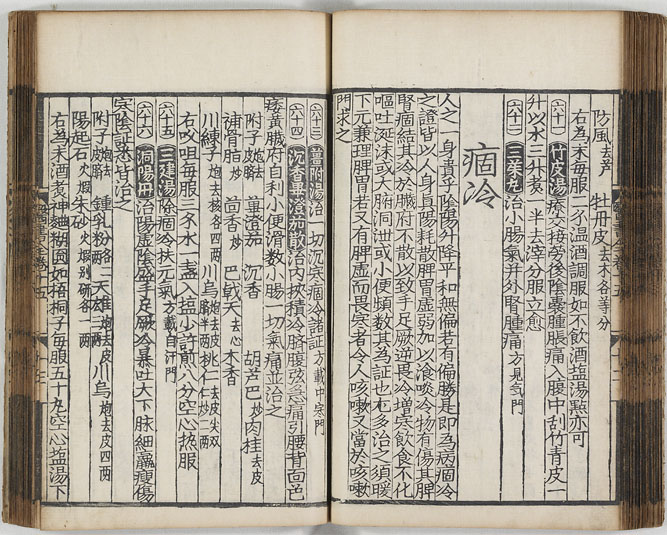 防風去芦 牡丹皮去木各等分
右為末每服二錢温酒調服如不飲酒塩湯點亦可
六十一 竹皮湯 療交接勞後陰囊腫脹痛入腹中刮竹青皮一
升以水三升煮一半去滓分服立愈
六十二 三茱丸 治小腸氣并外腎腫痛方見氣門
痼冷
人之一身貴乎陰陽升降平和無偏若有偏勝是即為病痼冷
之證皆以人身真陽耗散脾胃虛弱加以飡啖冷物有傷其脾
腎痼結其冷於臓府不散以致手足厥逆畏冷增寒飲食不化
嘔吐涎沫或大府洞泄或小便頻數其為証也尤多治之須暖
下元兼理脾胃若又有脾虛而畏寒者令人咳嗽又當於咳嗽
門求之
六十三 薑附湯 治一切沉寒痼冷諸証方載中寒門
六十四 沉香蓽澄茄散 治内挾積冷臍腹弦急痛引腰背面色
痿黄臓府自利小便滑數小腸一切氣痛並治之
附子炮 蓽澄茄 沉香 胡芦巴炒 肉桂去皮
補骨脂炒 茴香炒 巴戟天去心 木香
川練子炮去核各四兩 川烏炮去皮臍半兩 桃仁去皮尖双仁炒二兩
右㕮咀每服三錢水一盞入塩少許煎八分空心热服
六十五 三建湯 除痼冷扶元氣方載自汗門
六十六 洞陽丹 治陽虛陰盛手足厥冷暴吐大下脉細羸瘦傷
寒陰証悉皆治之
附子炮 鍾乳粉二兩 天雄炮去皮三兩 川烏炮去皮四兩
陽起石火煆 朱砂火煆別研各一兩
右為末酒煮神麯糊圓如梧桐子每服五十丸空心塩湯下